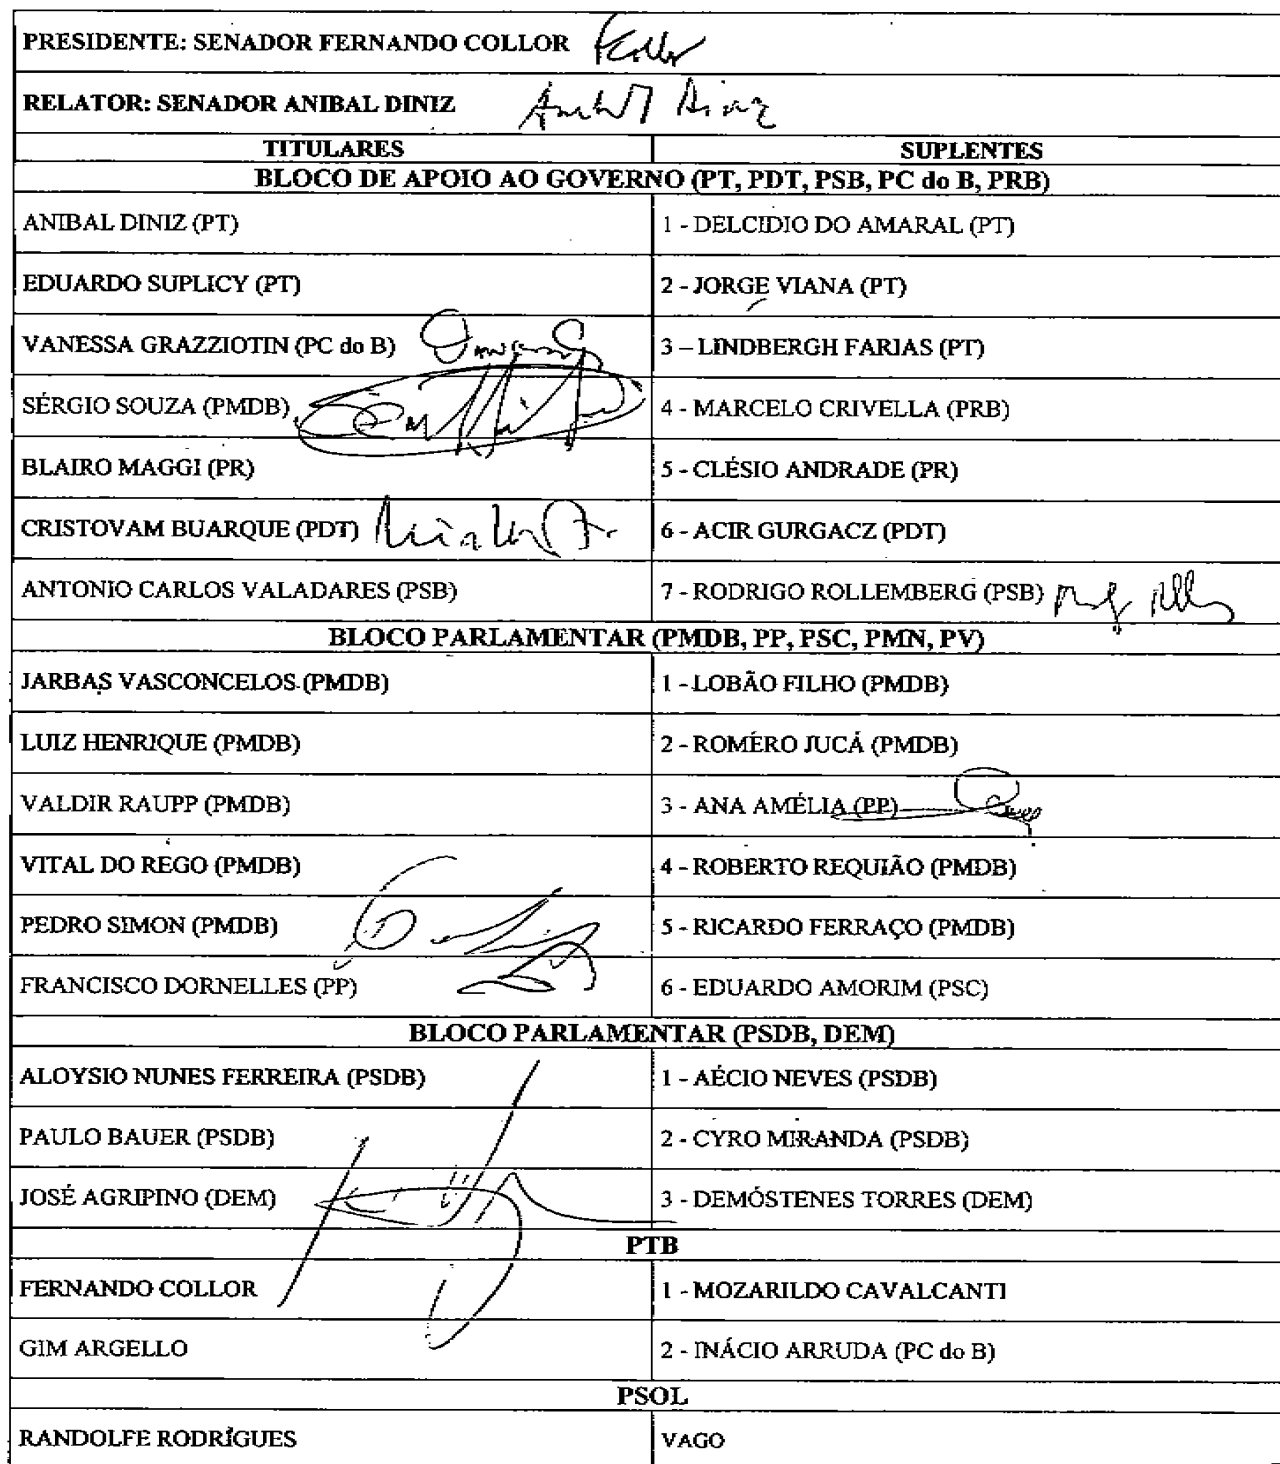 PRESIDENTE: SENADOR FERNANDO COLLOR FCollor
RELATOR: SENADOR ANIBAL DINIZ Anibal Diniz
TITULARES SUPLENTES
BLOCO DE APOIO AO GOVERNO (PT, PDT, PSB, PC do B, PRB)
ANIBAL DINIZ (PT) 1 - DELCIDIO DO AMARAL (PT)
EDUARDO SUPLICY (PT) 2 - JORGE VIANA (PT)
VANESSA GRAZZIOTIN (PC do B) 3 – LINDBERGH FARIAS (PT)
SÉRGIO SOUZA (PMDB) 4 - MARCELO CRIVELLA (PRB)
BLAIRO MAGGI (PR) 5 - CLÉSIO ANDRADE (PR)
CRISTOVAM BUARQUE (PDT) 6 - ACIR GURGACZ (PDT)
ANTONIO CARLOS VALADARES (PSB) 7 - RODRIGO ROLLEMBERG (PSB)
BLOCO PARLAMENTAR (PMDB, PP, PSC, PMN, PV)
JARBAS VASCONCELOS (PMDB) 1 - LOBÃO FILHO (PMDB)
LUIZ HENRIQUE (PMDB) 2 - ROMÉRO JUCÁ (PMDB)
VALDIR RAUPP (PMDB) 3 - ANA AMÉLIA (PP)
VITAL DO REGO (PMDB) 4 - ROBERTO REQUIÃO (PMDB)
PEDRO SIMON (PMDB) 5 - RICARDO FERRAÇO (PMDB)
FRANCISCO DORNELLES (PP) 6 - EDUARDO AMORIM (PSC)
BLOCO PARLAMENTAR (PSDB, DEM)
ALOYSIO NUNES FERREIRA (PSDB) 1 - AÉCIO NEVES (PSDB)
PAULO BAUER (PSDB) 2 - CYRO MIRANDA (PSDB)
JOSÉ AGRIPINO (DEM) 3 - DEMÓSTENES TORRES (DEM)
PTB
FERNANDO COLLOR 1 - MOZARILDO CAVALCANTI
GIM ARGELLO 2 - INÁCIO ARRUDA (PC do B)
PSOL
RANDOLFE RODRÍGUES VAGO